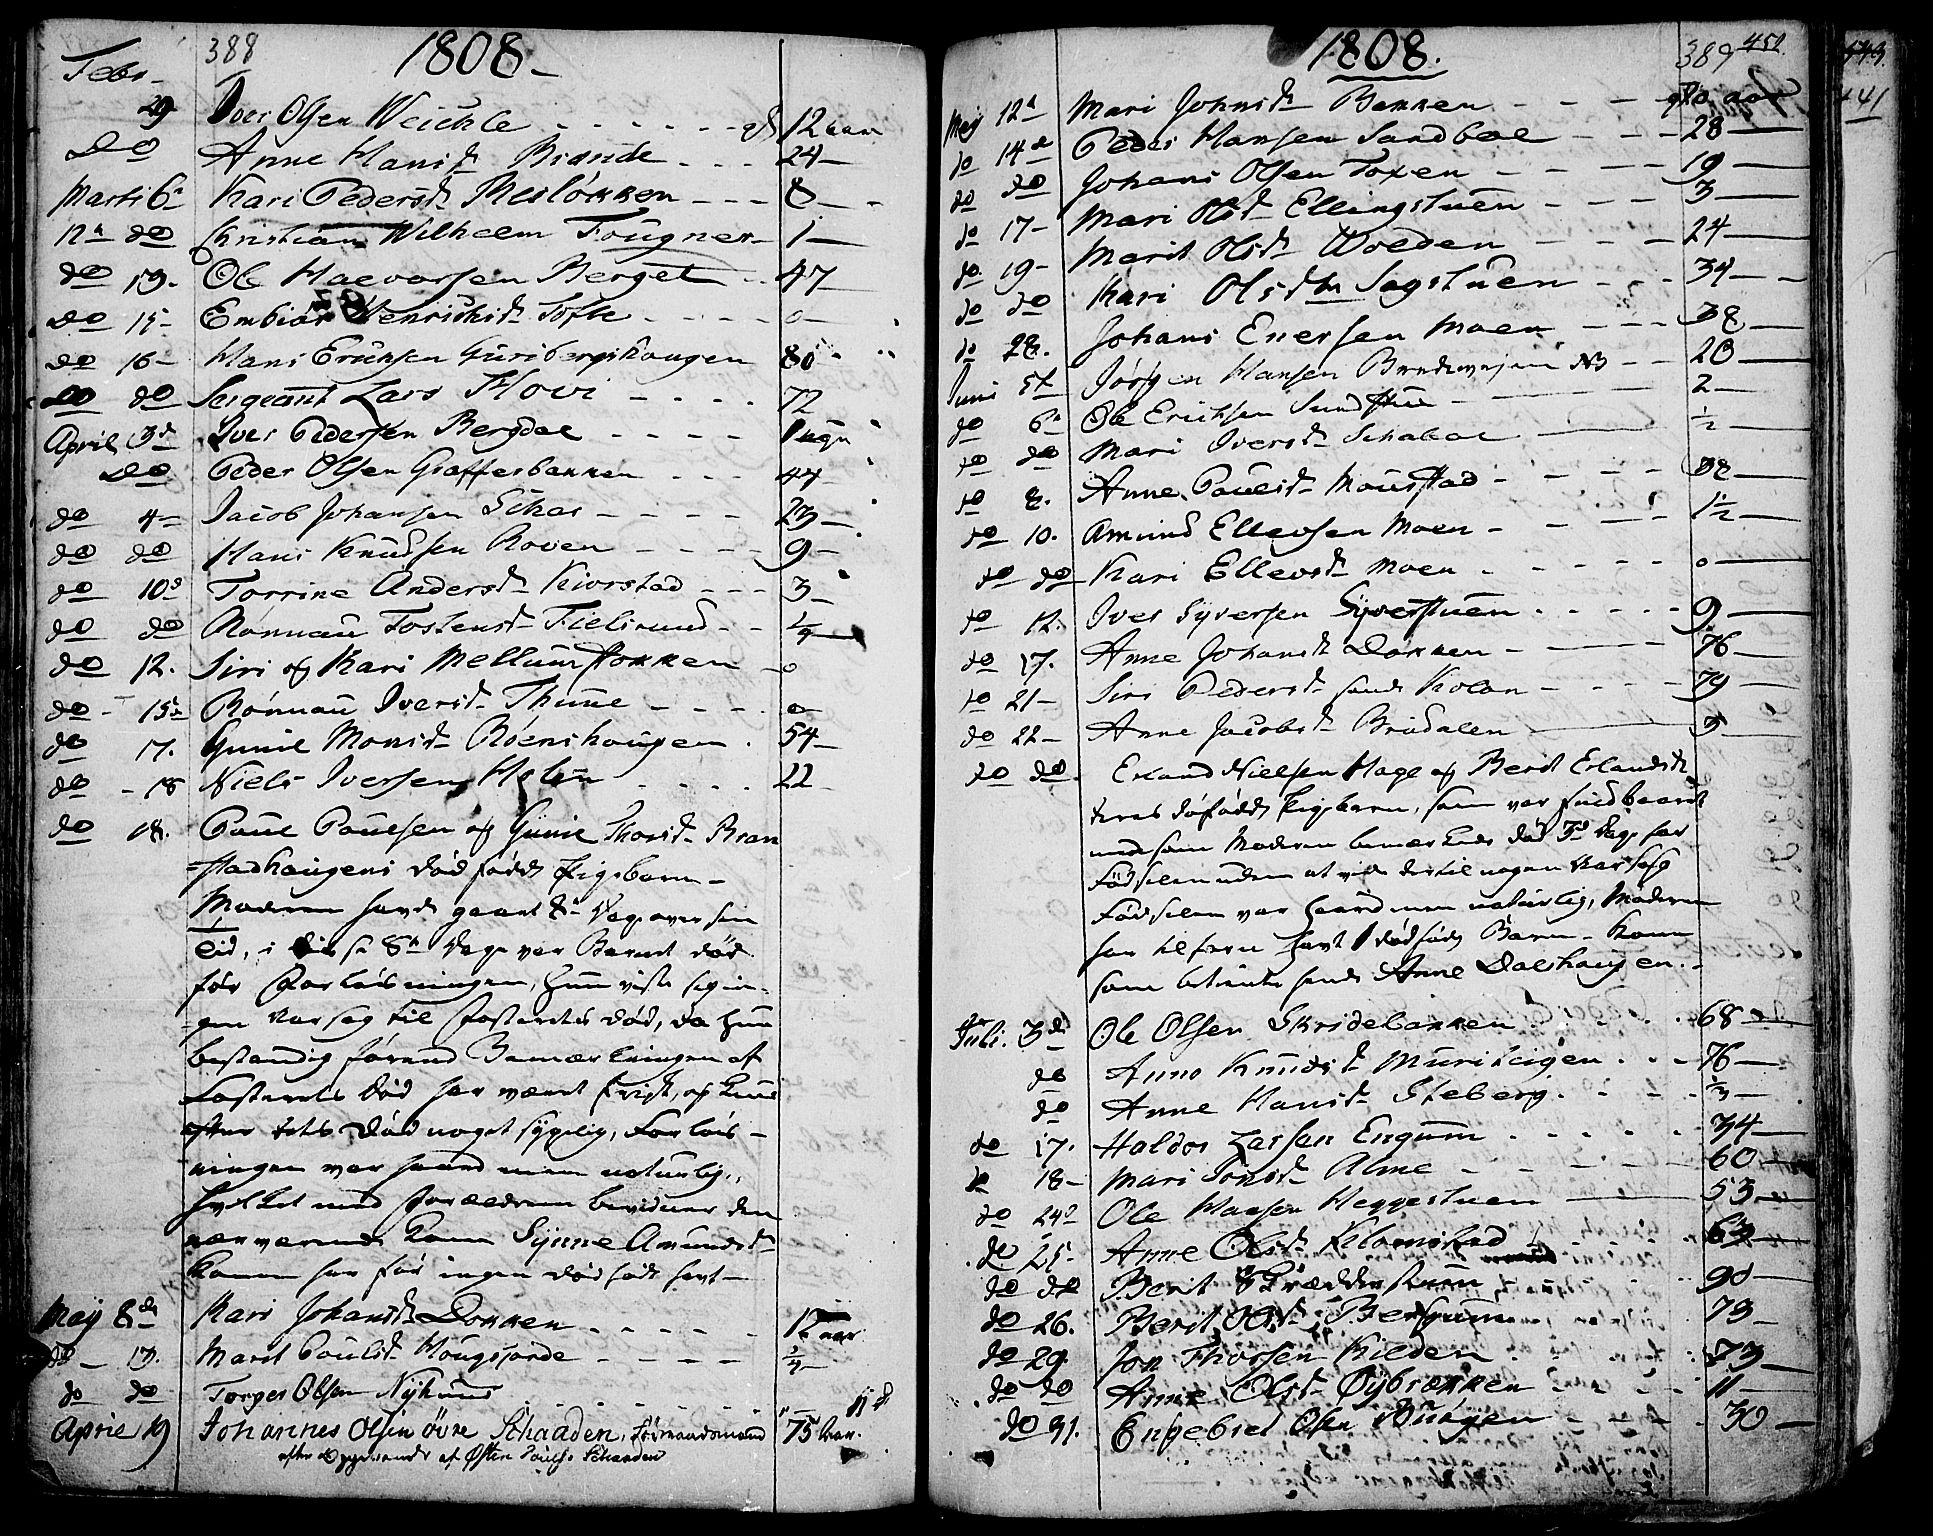 388 1808 -
Febr
29 Iver Olsen Weichle - - - - - - 12 aar
Do Anne Hansd. Brænde - - - 24 -
Marti 6te Kari Pedersd. Mesløkken - - - 8 -
12te do Christian Wilhelm Fougner - 1 -
do 13. Ole Haevorsen Berget - 47
do 15 - Embiør Henrichsd. Tofte - - - - o -
do 16 - Hans Erichsen Guribergshougen 80
Do do Sergeant Lars Flovi - - - - 72
April 3de Iver Pedersen Bergdal - - - - 1 uge
Do Peder Olsen Graffersbakken - - - 44 -
do 4 - Jacob Johansen Schar - - - - 23 -
do do Hans Knudsen Roven - - - - 9 -
do 10de Torrine Andersd. Kiorstad - - - 3 -
do do Rønnau Tostensd. Fielsrund - - 1/4
do 12. Siri og Kari Mellumstokken - o
do - 15de Rønnau Iversd. Thune - - - - o -
do 17. Gunil Monsd. Røenshaugen . 54 -
do - 18 Niels Iversen Holen . . . . . 22 -
do 18. Paul Paulsen og Gunil Thorsd. Bran
stadhaugens dødfødt Pigebarn -
Moderen havde gaaet 8te Dage over sin
Tid, i disse 8te Dage var Barnet død
før Forløsningen, hun viste sig in-
gen Aarsag til Fosterets død, da hun
bestandig førend Bemærkningen af
Fosterets Død har været frisk, og kun
efter dets Død noget sygelig, Forløs-
ningen var haard men naturlig,
hvilket med Forældrene bevidner den
nærværende Kone Synne Amundsd.
Konen har før ingen dødfødt havt -
May 8de Kari Johansd. Dokken - - - - - - 12 aar
do - 13. Marit Paulsd. Hougsjorde - - - - 3/4 -
do do Torger Olsen Nyhuus - - - - - -
April 19 Johannes Olsen øvre Schaaden, Føderaadsmand 75 Aar.
efter Opgivende af Østen Pouls. Schaaden
1808. 389 451
441
May 12te Mari Johnsd. Bakken - - - - aar
do 14de Peder Hansen Sandboe - - - 28 -
do do Johans Olsen Toxen - - - - 19 -
do 17 - Mari Olsd. Ellingstuen - - - 3 -
do 19 - Marit Olsd. Wolden - - - - 24 -
do do Kari Olsd. Sagstuen - - - 34 -
do 28. Johans Enersen Moen - - - 38 -
Juni 5te Jørgen Hansen NB - - 20
do 6te Ole Erichsen Sundstue - - - 2 -
do do Mari Iversd. Schaboe - 1/2
do 8. Anne Paulsd. Moustad - - - - 82 -
do 10. Amund Ellevsen Moen - - - 1 1/2 -
do do Kari Ellevsd. Moen - - - - - o -
do 12. Iver Syversen Syverstuen - - - - 9. -
do 17. Anne Johansd. Dokken - - - - 76 -
do 21 - Siri Pedersd. Kolon - - - - 79 -
do 22 - Anne Jacobsd. Bradalen - 5 -
do do. Erland Nielsen Hage og Berit Erlandsd.
deres dødfødt Pigebarn, som var fuldbaaret
men som Moderen bemærkede død 3de Dage før
Fødselen uden at vide dertil nogen Aarsag
Fødselen var haard men naturlig, Moderen
har tilforn havt 1 dødfødt Barn - Konen
som betiente hende Anne Dalshaugen. -
Juli. 3de Ole Olsen Skridebakken . . . . 68 -
do Anne Knudsd. Muristeigen . . - 76 -
do Anne Hansd. Steberg . . . . 1/3 -
do 17. Haldor Larsen Engum . . . . . 34 -
do 18 - Mari Tonsd. Alme - - - - - 60 -
do 24de Ole Hansen Heggestuen - 53 -
do 25 - Anne Olsd. Kilomstad . . . 63 -
do do Berit - - - 90 -
do 26. Berit Olsd. Bergum . . . 73 -
do 29 Jon Thorsen Kilden . . . . . 73 -
do do Anne Olsd. Øybrækken - - - - 11 -
do 31. Engebret Olsen Haugen - - - - 30 -